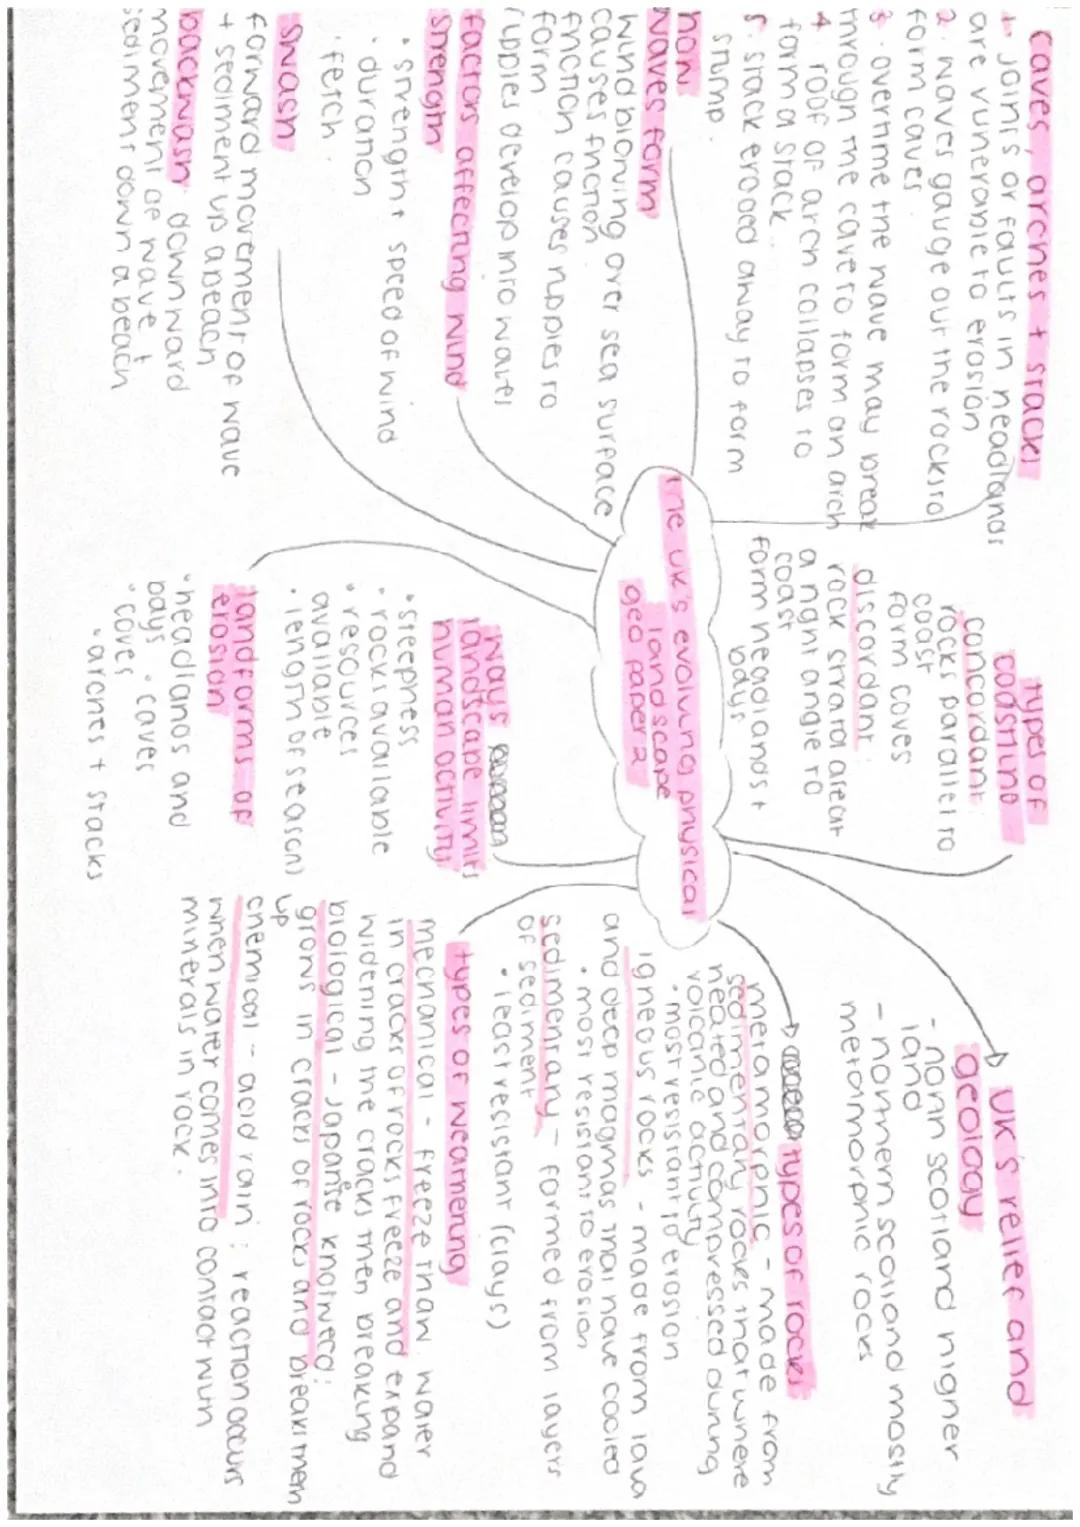 caves, arches + stacks
1. joints or faults in headlands
are vunerable to erosion
2. waves gauge out the rocks to
form caves
3. overtime the wave may break
through the cave to form an arch
4. roof of arch collapses to
form a stack
5. stack eroded away to form
stump.
how
waves form
wind blowing over sea surface
causes friction
friction causes ripples to
form
ripples develop into waves
factors affecting wind
strength
• strenght + speed of wind
• duration
• fetch.
swash
forward movement of wave
+ sediment up a beach
backwash downward
movement of wave +
sediment down a beach
the UK's evolving physical
landscape
geo paper 2
types of
coastline
concordant:
rocks parallel to
coast
form coves
discordant:
rock strata are at
a right angle to
coast
form headlands +
bays
ways
landscape limits
human activity
• steepness
• rocks available
• resources
available
• length of season)
landforms of
erosion
• headlands and
bays • caves
• coves
• arches + stacks
UK's relief and
geology
- north scotland higher
land
- northern scotland mostly
metammorphic rocks
types of rocks
metamorphic - made from
sedimentary rocks that where
heated and compressed during
volcanic activity
• most resistant to erosion
igneous rocks - made from lava
and deep magmas that have cooled
• most resistant to erosion
sedimentary - formed from layers
of sediment
• least resistant (clays)
types of weathering
mechanical - freeze thaw: water
in cracks of rocks freeze and expand
widening the cracks then breaking
biological - Japanse knotweed:
grows in cracks of rocks and breaks them
up
chemical - acid rain: reaction occurs
when water comes into contact with
minerals in rock.